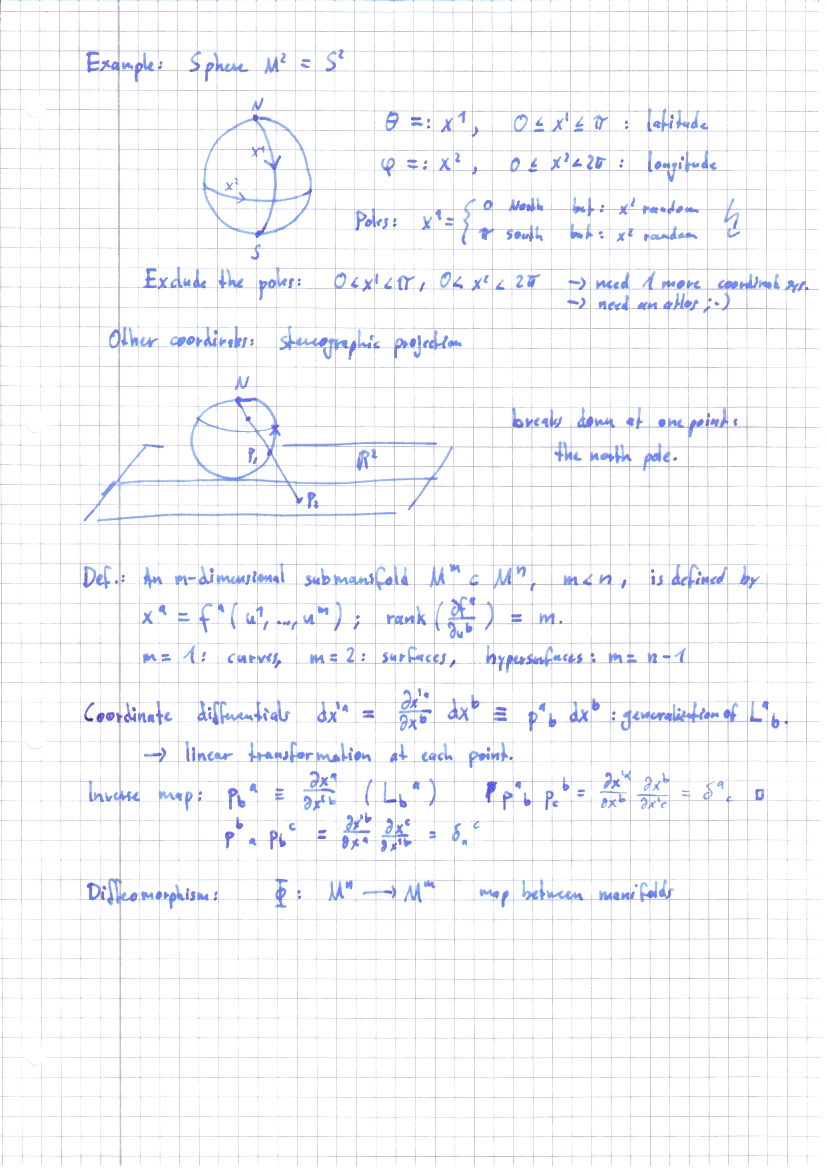 Example: Sphere M² = S²
N
θ =: x¹, 0 ≤ x¹ ≤ π : latitude
x¹
φ =: x², 0 ≤ x² < 2π : longitude
x²
Poles: x¹ = { 0 North but: x¹ random
π South but: x² random
S
Exclude the poles: 0 < x¹ < π, 0 < x² < 2π → need 1 more coordinate sys.
→ need an atlas ;-)
Other coordinates: stereographic projection
N
breaks down at one point:
P₁ ℝ² the north pole.
P₂
Def.: An m-dimensional submanifold Mᵐ ⊂ Mⁿ, m < n, is defined by
xᵃ = fᵃ(u¹, ..., uᵐ) ; rank (∂fᵃ/∂uᵇ) = m.
m = 1: curves, m = 2: surfaces, hypersurfaces: m = n-1
Coordinate differentials dx'ᵃ = ∂x'ᵃ/∂xᵇ dxᵇ ≡ pᵃ_b dxᵇ : generalization of Lᵃ_b.
→ linear transformation at each point.
Inverse map: p_bᵃ ≡ ∂xᵃ/∂x'ᵇ (L_bᵃ) pᵃ_b p_cᵇ = ∂x'ᵃ/∂xᵇ ∂xᵇ/∂x'ᶜ = δᵃ_c □
pᵇ_a p_bᶜ = ∂x'ᵇ/∂xᵃ ∂xᶜ/∂x'ᵇ = δ_aᶜ
Diffeomorphism: Φ : Mⁿ → Mᵐ map between manifolds